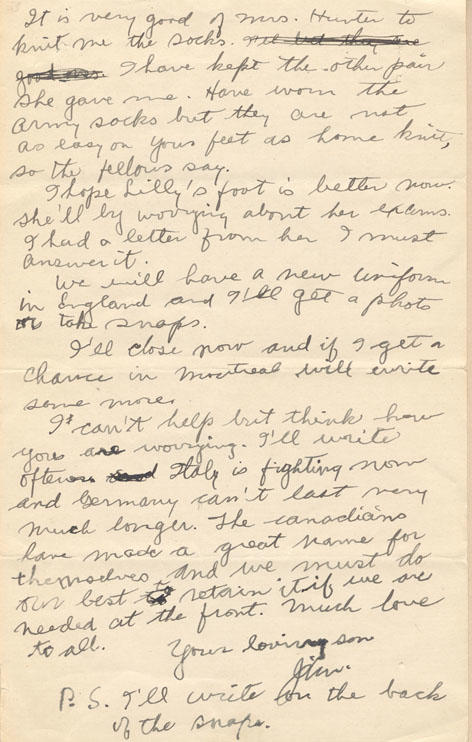 It is very good of Mrs. Hunter to
knit me the socks. All but they are
good ones. I have kept the other pair
she gave me. Have worn the
army socks but they are not
as easy on your feet as home knit,
so the fellows say.
I hope Lilly's foot is better now.
she'll by worrying about her exams.
I had a letter from her I must
answer it.
We will have a new uniform
in England and I'll get a photo
or take snaps.
I'll close now and if I get a
chance in Montreal will write
some more.
I can't help but think how
yous are worrying. I'll write
often Italy is fighting now
and Germany can't last very
much longer. The canadians
have made a great name for
themselves and we must do
our best to retain it if we are
needed at the front. Much love
to all.
Your loving son
Jim.
P. S. I'll write on the back
of the snaps.